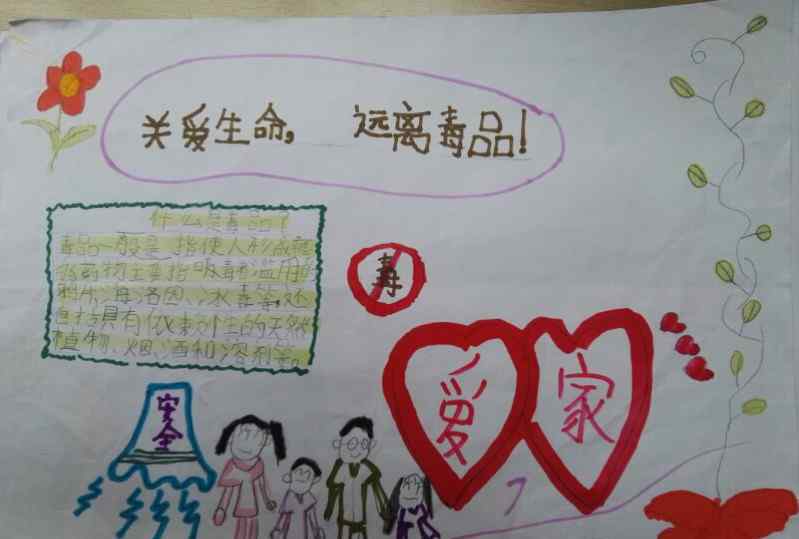 关爱生命, 远离毒品!
什么是毒品?
毒品一般是指使人形成瘾
癖药物主要指吸毒者滥用的
鸦片、海洛因、冰毒等,还
包括具有依赖性的天然
植物、烟、酒和溶剂等。
毒
爱 家
安全